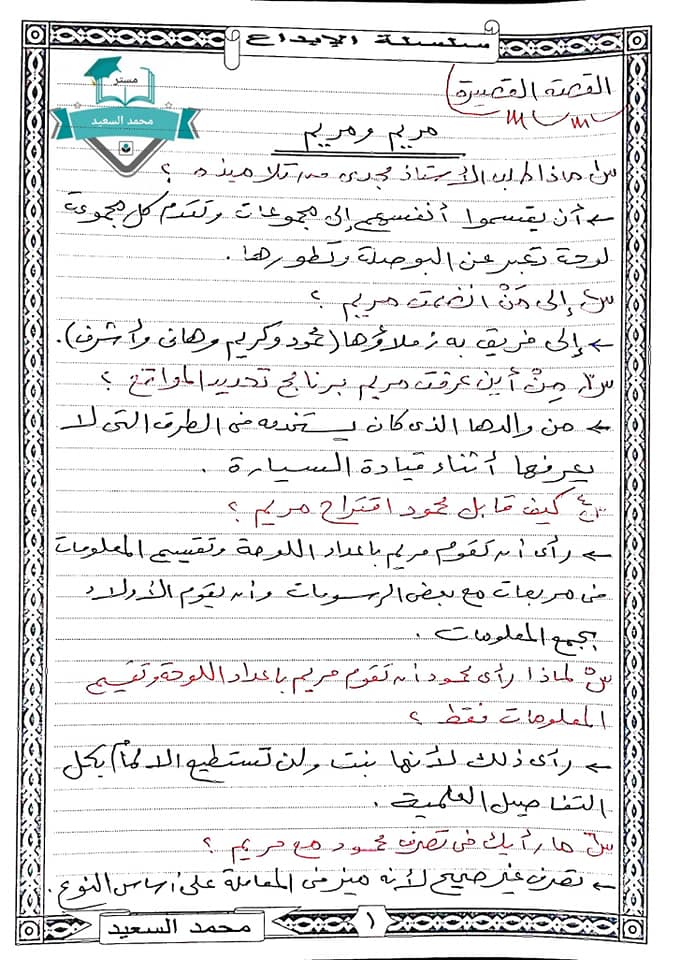 سلسلة الإبداع
مستر
محمد السعيد
القصة القصيرة
مريم ومريم
س١ ماذا طلب الأستاذ مجدى من تلاميذه ؟
← أن يقسموا أنفسهم إلى مجموعات وتقدم كل مجموعة
لوحة تعبر عن البوصلة وتطورها .
س٢ إلى مَنْ انضمت مريم ؟
← إلى فريق به زملاؤها (محمود وكريم وهانى وأشرف).
س٣ مِنْ أين عرفت مريم برنامج تحديد المواقع ؟
← من والدها الذى كان يستخدمه فى الطرق التى لا
يعرفها أثناء قيادة السيارة .
س٤ كيف قابل محمود اقتراح مريم ؟
← رأى أن تقوم مريم بإعداد اللوحة وتقسيم المعلومات
فى مربعات مع بعض الرسومات وأن يقوم الأولاد
بجمع المعلومات .
س٥ لماذا رأى محمود أن تقوم مريم بإعداد اللوحة وتقسيم
المعلومات فقط ؟
← رأى ذلك لأنها بنت ولن تستطيع الإلمام بكل
التفاصيل العلمية .
س٦ ما رأيك فى تصرف محمود مع مريم ؟
← تصرف غير صحيح لأنه ميز فى المعاملة على أساس النوع .
١
محمد السعيد